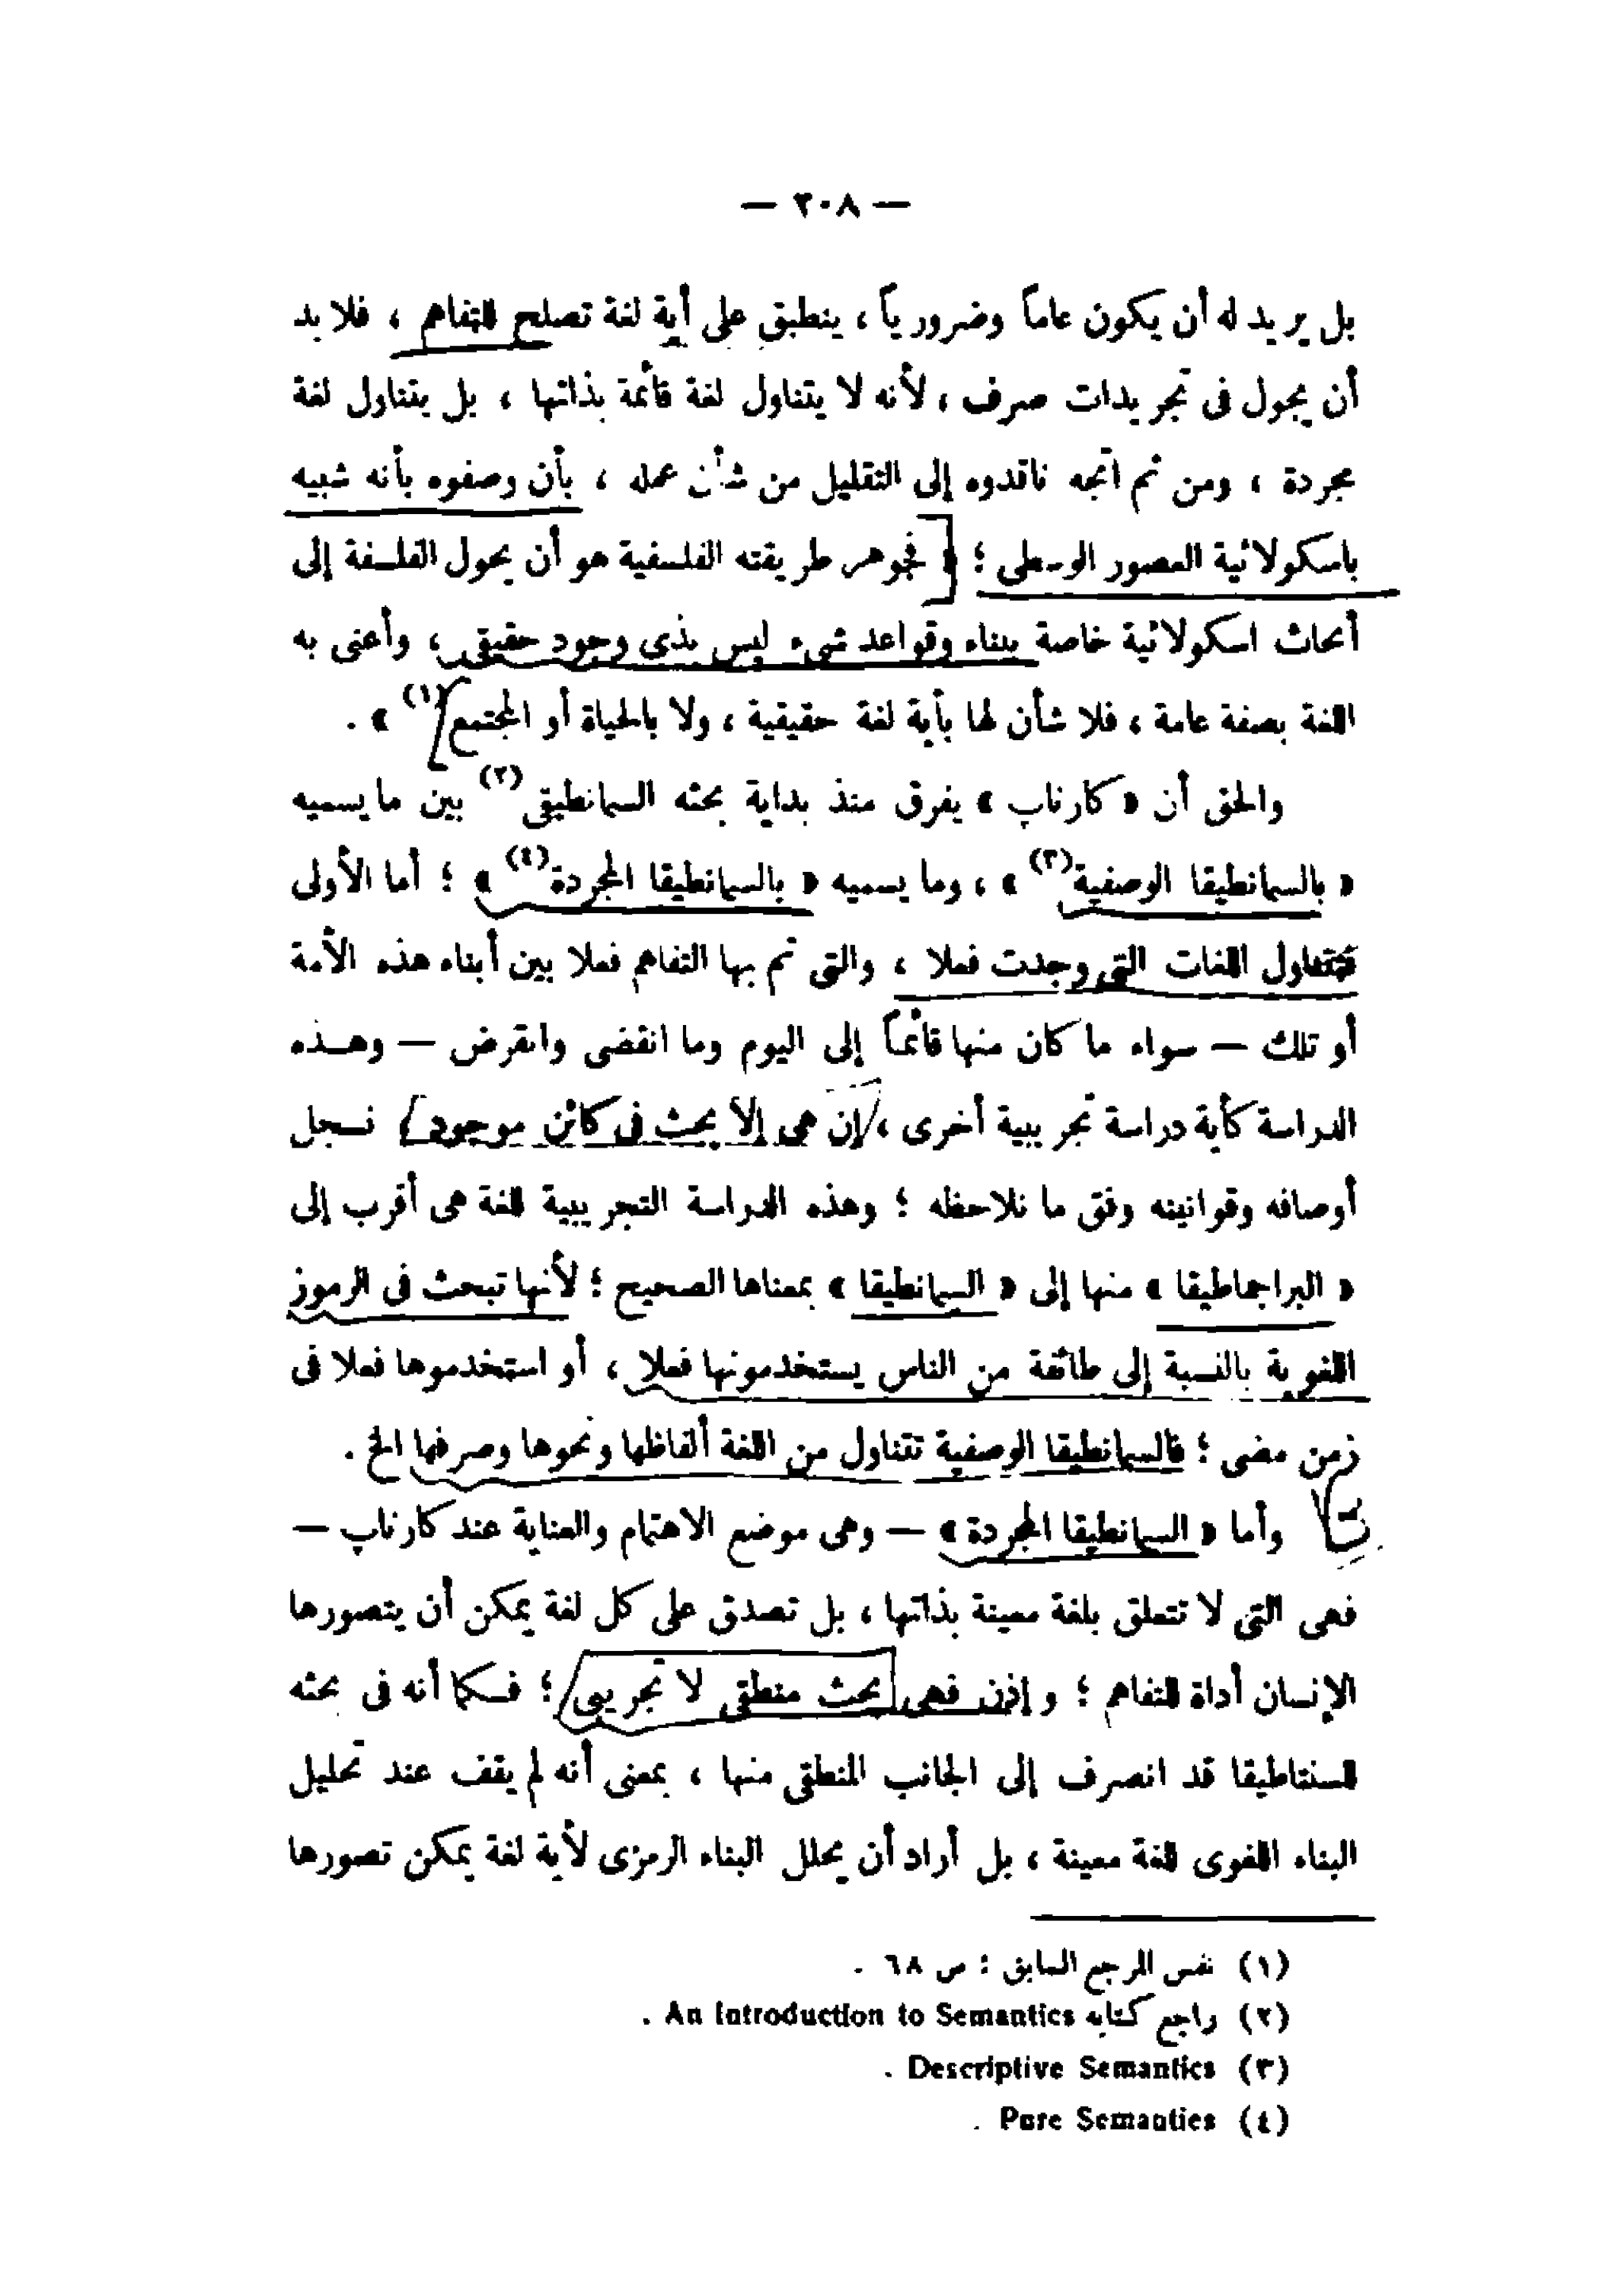 — ٣٠٨ —
بل يريد له أن يكون عاماً وضرورياً ، ينطبق على أية لغة تصلح للتفاهم ، فلا بد
أن يجول فى تجريدات صرف ، لأنه لا يتناول لغة قائمة بذاتها ، بل يتناول لغة
مجردة ، ومن ثم اتجه ناقدوه إلى التقليل من شأن عمله ، بأن وصفوه بأنه شبيه
باسكولائية العصور الوسطى ؛ « فجوهر طريقته الفلسفية هو أن يحول الفلسفة إلى
أبحاث اسكولائية خاصة ببناء وقواعد شىء ليس بذى وجود حقيقى ، وأعنى به
اللغة بصفة عامة ، فلا شأن لها بأية لغة حقيقية ، ولا بالحياة أو المجتمع (١) » .
والحق أن « كارناپ » يفرق منذ بداية بحثه السمانطيقى (٢) بين ما يسميه
« بالسمانطيقا الوصفية (٣) » ، وما يسميه « بالسمانطيقا المجردة (٤) » ؛ أما الأولى
فتتناول اللغات التى وجدت فعلا ، والتى تم بها التفاهم فعلا بين أبناء هذه الأمة
أو تلك — سواء ما كان منها قائماً إلى اليوم وما انقضى وانقرض — وهذه
الدراسة كأية دراسة تجريبية أخرى ، إن هى إلا بحث فى كائن موجود ، نسجل
أوصافه وقوانينه وفق ما نلاحظه ؛ وهذه الدراسة التجريبية للغة هى أقرب إلى
« البراجماطيقا » منها إلى « السمانطيقا » بمعناها الصحيح ؛ لأنها تبحث فى الرموز
اللغوية بالنسبة إلى طائفة من الناس يستخدمونها فعلا ، أو استخدموها فعلا فى
زمن مضى ؛ فالسمانطيقا الوصفية تتناول من اللغة ألفاظها ونحوها وصرفها الخ .
وأما « السمانطيقا المجردة » — وهى موضع الاهتمام والعناية عند كارناپ —
فهى التى لا تتعلق بلغة معينة بذاتها ، بل تصدق على كل لغة يمكن أن يتصورها
الإنسان أداة للتفاهم ؛ وإذن فهى بحث منطقى لا تجريبى ؛ فكما أنه فى بحثه
للسنتاطيقا قد انصرف إلى الجانب المنطقى منها ، بمعنى أنه لم يقف عند تحليل
البناء اللغوى للغة معينة ، بل أراد أن يحلل البناء الرمزى لأية لغة يمكن تصورها
(١) نفس المرجع السابق : ص ٦٨ .
(٢) راجع كتابه An Introduction to Semantics .
(٣) Descriptive Semantics .
(٤) Pure Semantics .